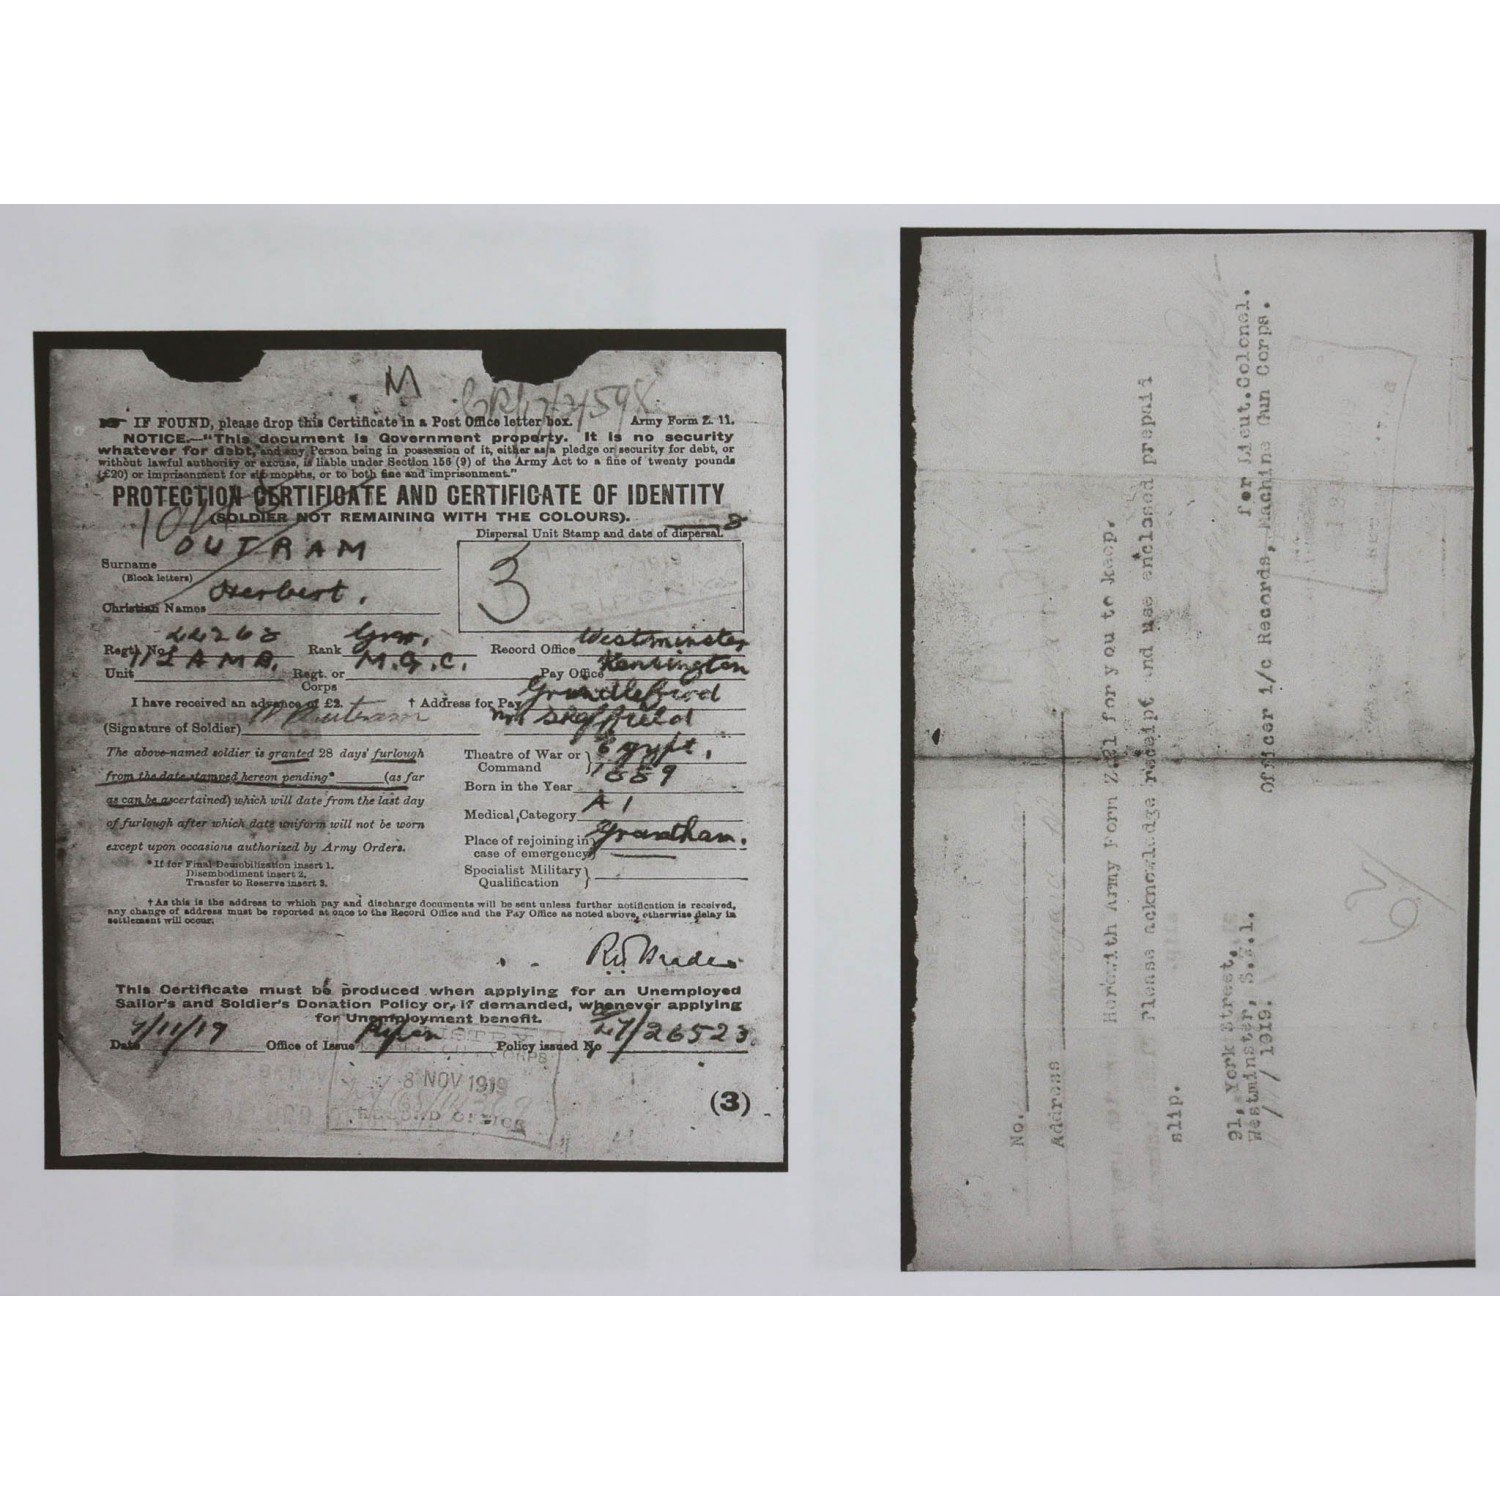 M
IF FOUND, please drop this Certificate in a Post Office letter box. Army Form Z. 11.
NOTICE.—"This document is Government property. It is no security
whatever for debt, and any Person being in possession of it, either as a pledge or security for debt, or
without lawful authority or excuse, is liable under Section 156 (9) of the Army Act to a fine of twenty pounds
(£20) or imprisonment for six months, or to both fine and imprisonment."
PROTECTION CERTIFICATE AND CERTIFICATE OF IDENTITY
(SOLDIER NOT REMAINING WITH THE COLOURS).
Dispersal Unit Stamp and date of dispersal. 3
3
Surname OUTRAM
(Block letters)
Christian Names Herbert.
Regtl. No. 22263 Rank Gnr. Record Office Westminster
Unit LAMB. Regt. or Corps M.G.C. Pay Office Kensington
I have received an advance of £2. † Address for Pay Grindleford
(Signature of Soldier) H Outram nr Sheffield
The above-named soldier is granted 28 days' furlough
from the date stamped hereon pending* (as far
as can be ascertained) which will date from the last day
of furlough after which date uniform will not be worn
except upon occasions authorized by Army Orders.
*If for Final Demobilization insert 1.
Disembodiment insert 2.
Transfer to Reserve insert 3.
Theatre of War or Command Egypt.
Born in the Year 1889
Medical Category A 1
Place of rejoining in case of emergency Grantham.
Specialist Military Qualification
†As this is the address to which pay and discharge documents will be sent unless further notification is received,
any change of address must be reported at once to the Record Office and the Pay Office as noted above, otherwise delay in
settlement will occur.
This Certificate must be produced when applying for an Unemployed
Sailor's and Soldier's Donation Policy or, if demanded, whenever applying
for Unemployment benefit.
Date 7/11/19 Office of Issue Ripon Policy issued No 27/26523
8 NOV 1919
RECORD OFFICE
(3)
No.
Address
Herewith Army Form Z.21 for you to keep.
Please acknowledge receipt and use enclosed prepaid
slip.
91, York Street,
Westminster, S.W.1.
/ / 1919.
for Lieut.Colonel.
Officer i/c Records, Machine Gun Corps.